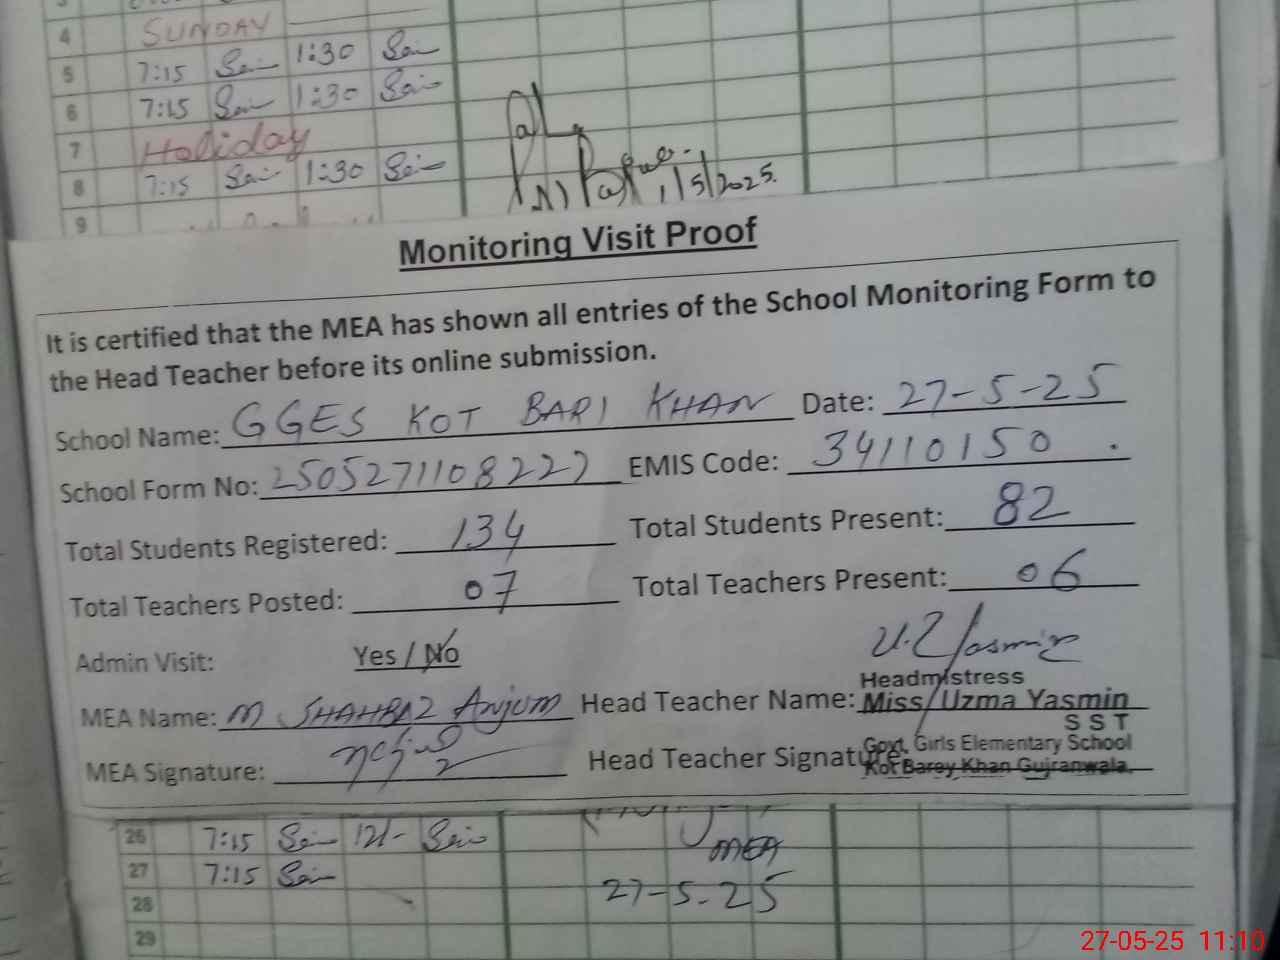 4 SUNDAY
5 7:15 Sai 1:30 Sai
6 7:15 Sai 1:30 Sai
7 Holiday
8 7:15 Sai 1:30 Sai
1/5/2025.
9
Monitoring Visit Proof
It is certified that the MEA has shown all entries of the School Monitoring Form to
the Head Teacher before its online submission.
School Name: GGES KOT BARI KHAN Date: 27-5-25
School Form No: 2505271108227 EMIS Code: 34110150
Total Students Registered: 134 Total Students Present: 82
Total Teachers Posted: 07 Total Teachers Present: 06
Admin Visit: Yes / No
U. Yasmin
Headmistress
MEA Name: M SHAHBAZ Anjum Head Teacher Name: Miss Uzma Yasmin
S S T
MEA Signature: Head Teacher Signature: Govt. Girls Elementary School
Kot Barey Khan Gujranwala.
26 7:15 Sai 12/- Sai
MEA
27 7:15 Sai
27-5-25
28
29
27-05-25 11:10